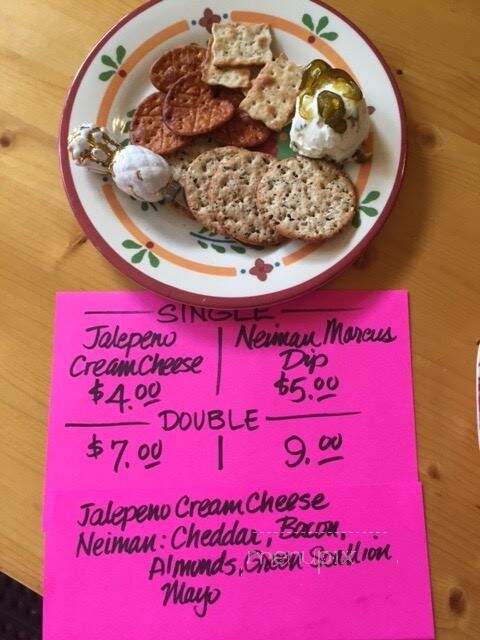 SINGLE
Jalepeno Neiman Marcus
Cream Cheese Dip
$4.00 $5.00
DOUBLE
$7.00 9.00
Jalepeno Cream Cheese
Neiman: Cheddar, Bacon,
Almonds, Green Scallion
Mayo